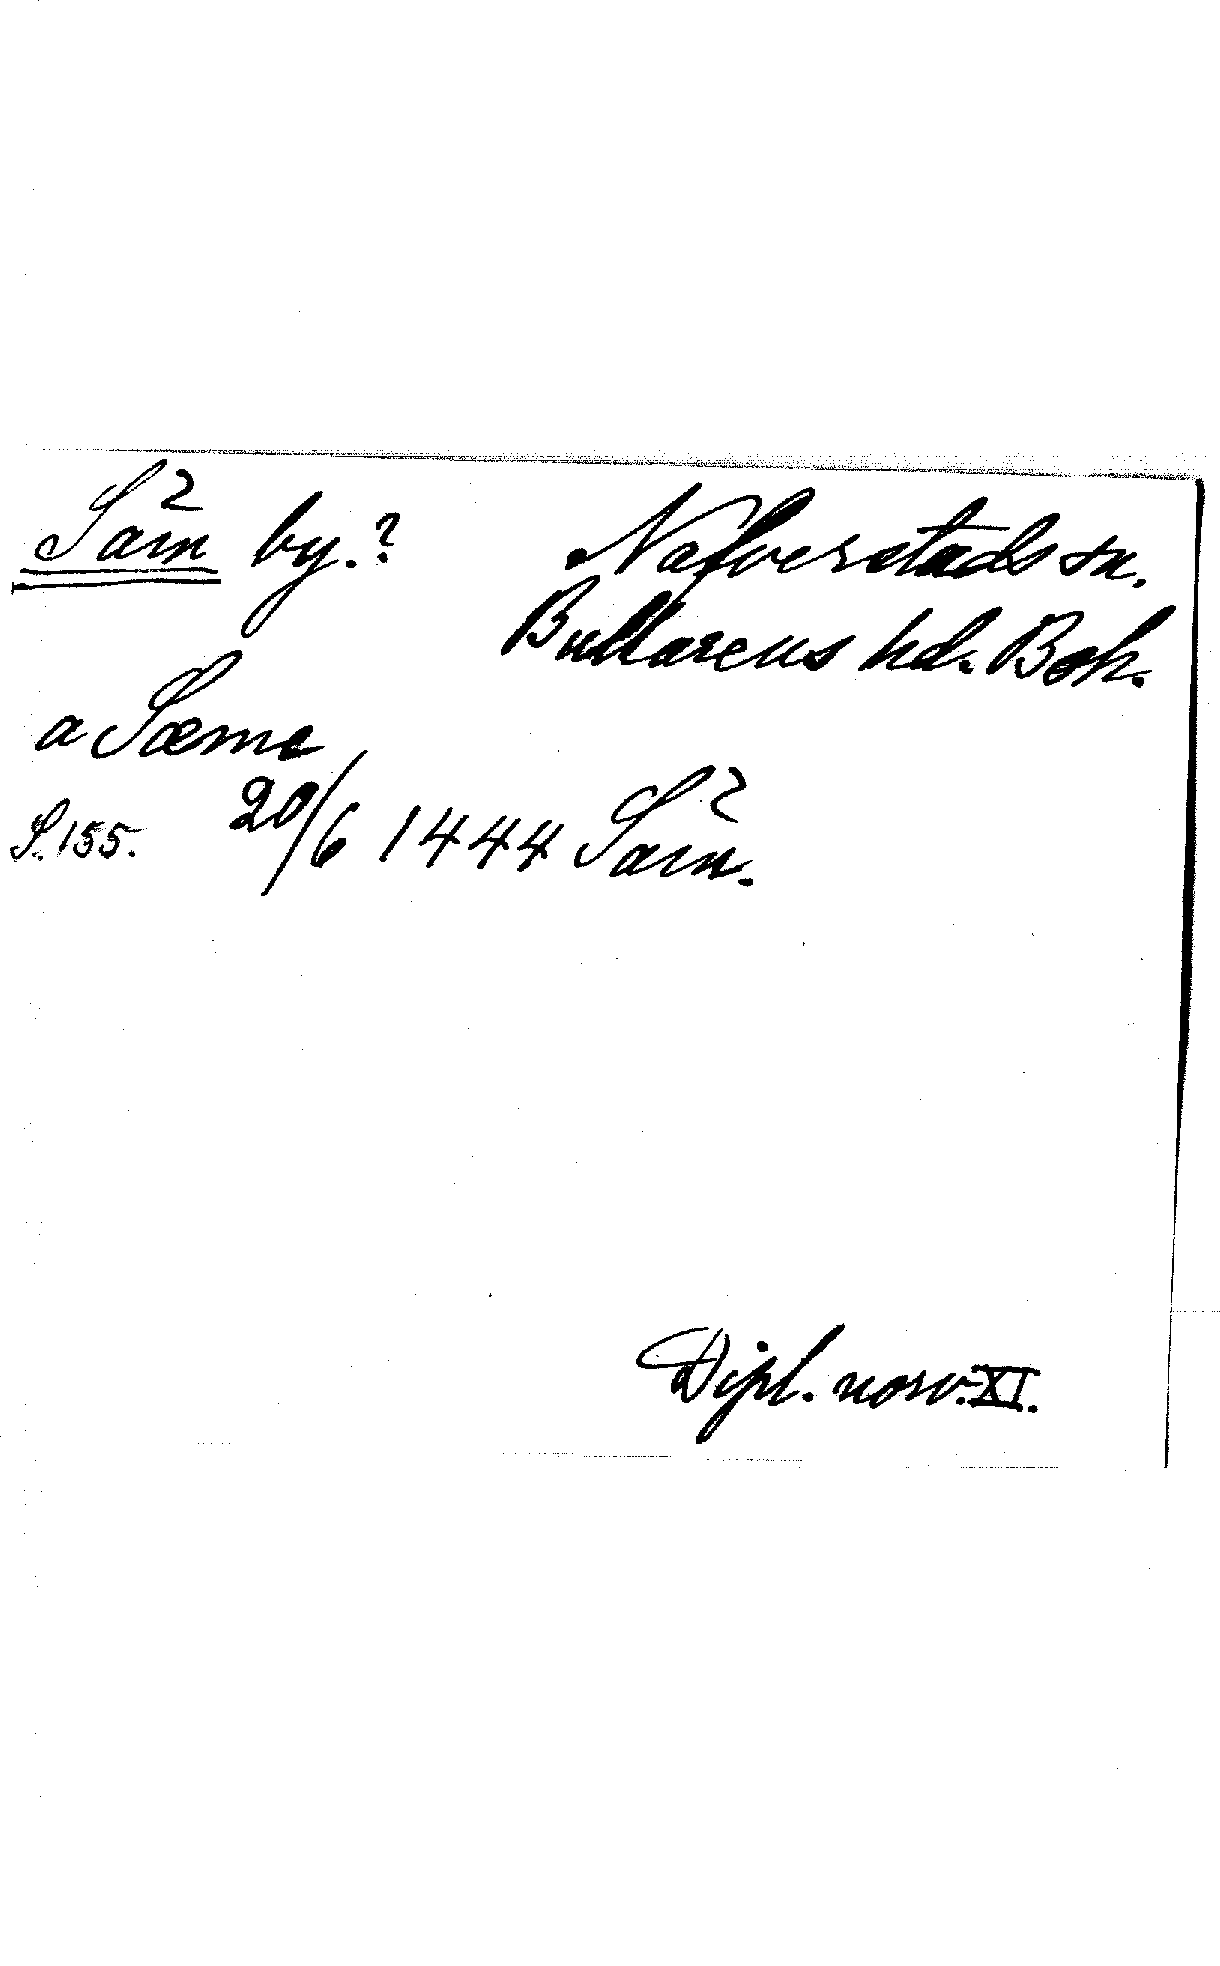 Såm by.? Nafverstads sn.
Bullarens hd. Boh.
a Sæme
S. 155. 20/6 1444 Såm.
Dipl. norv. XI.